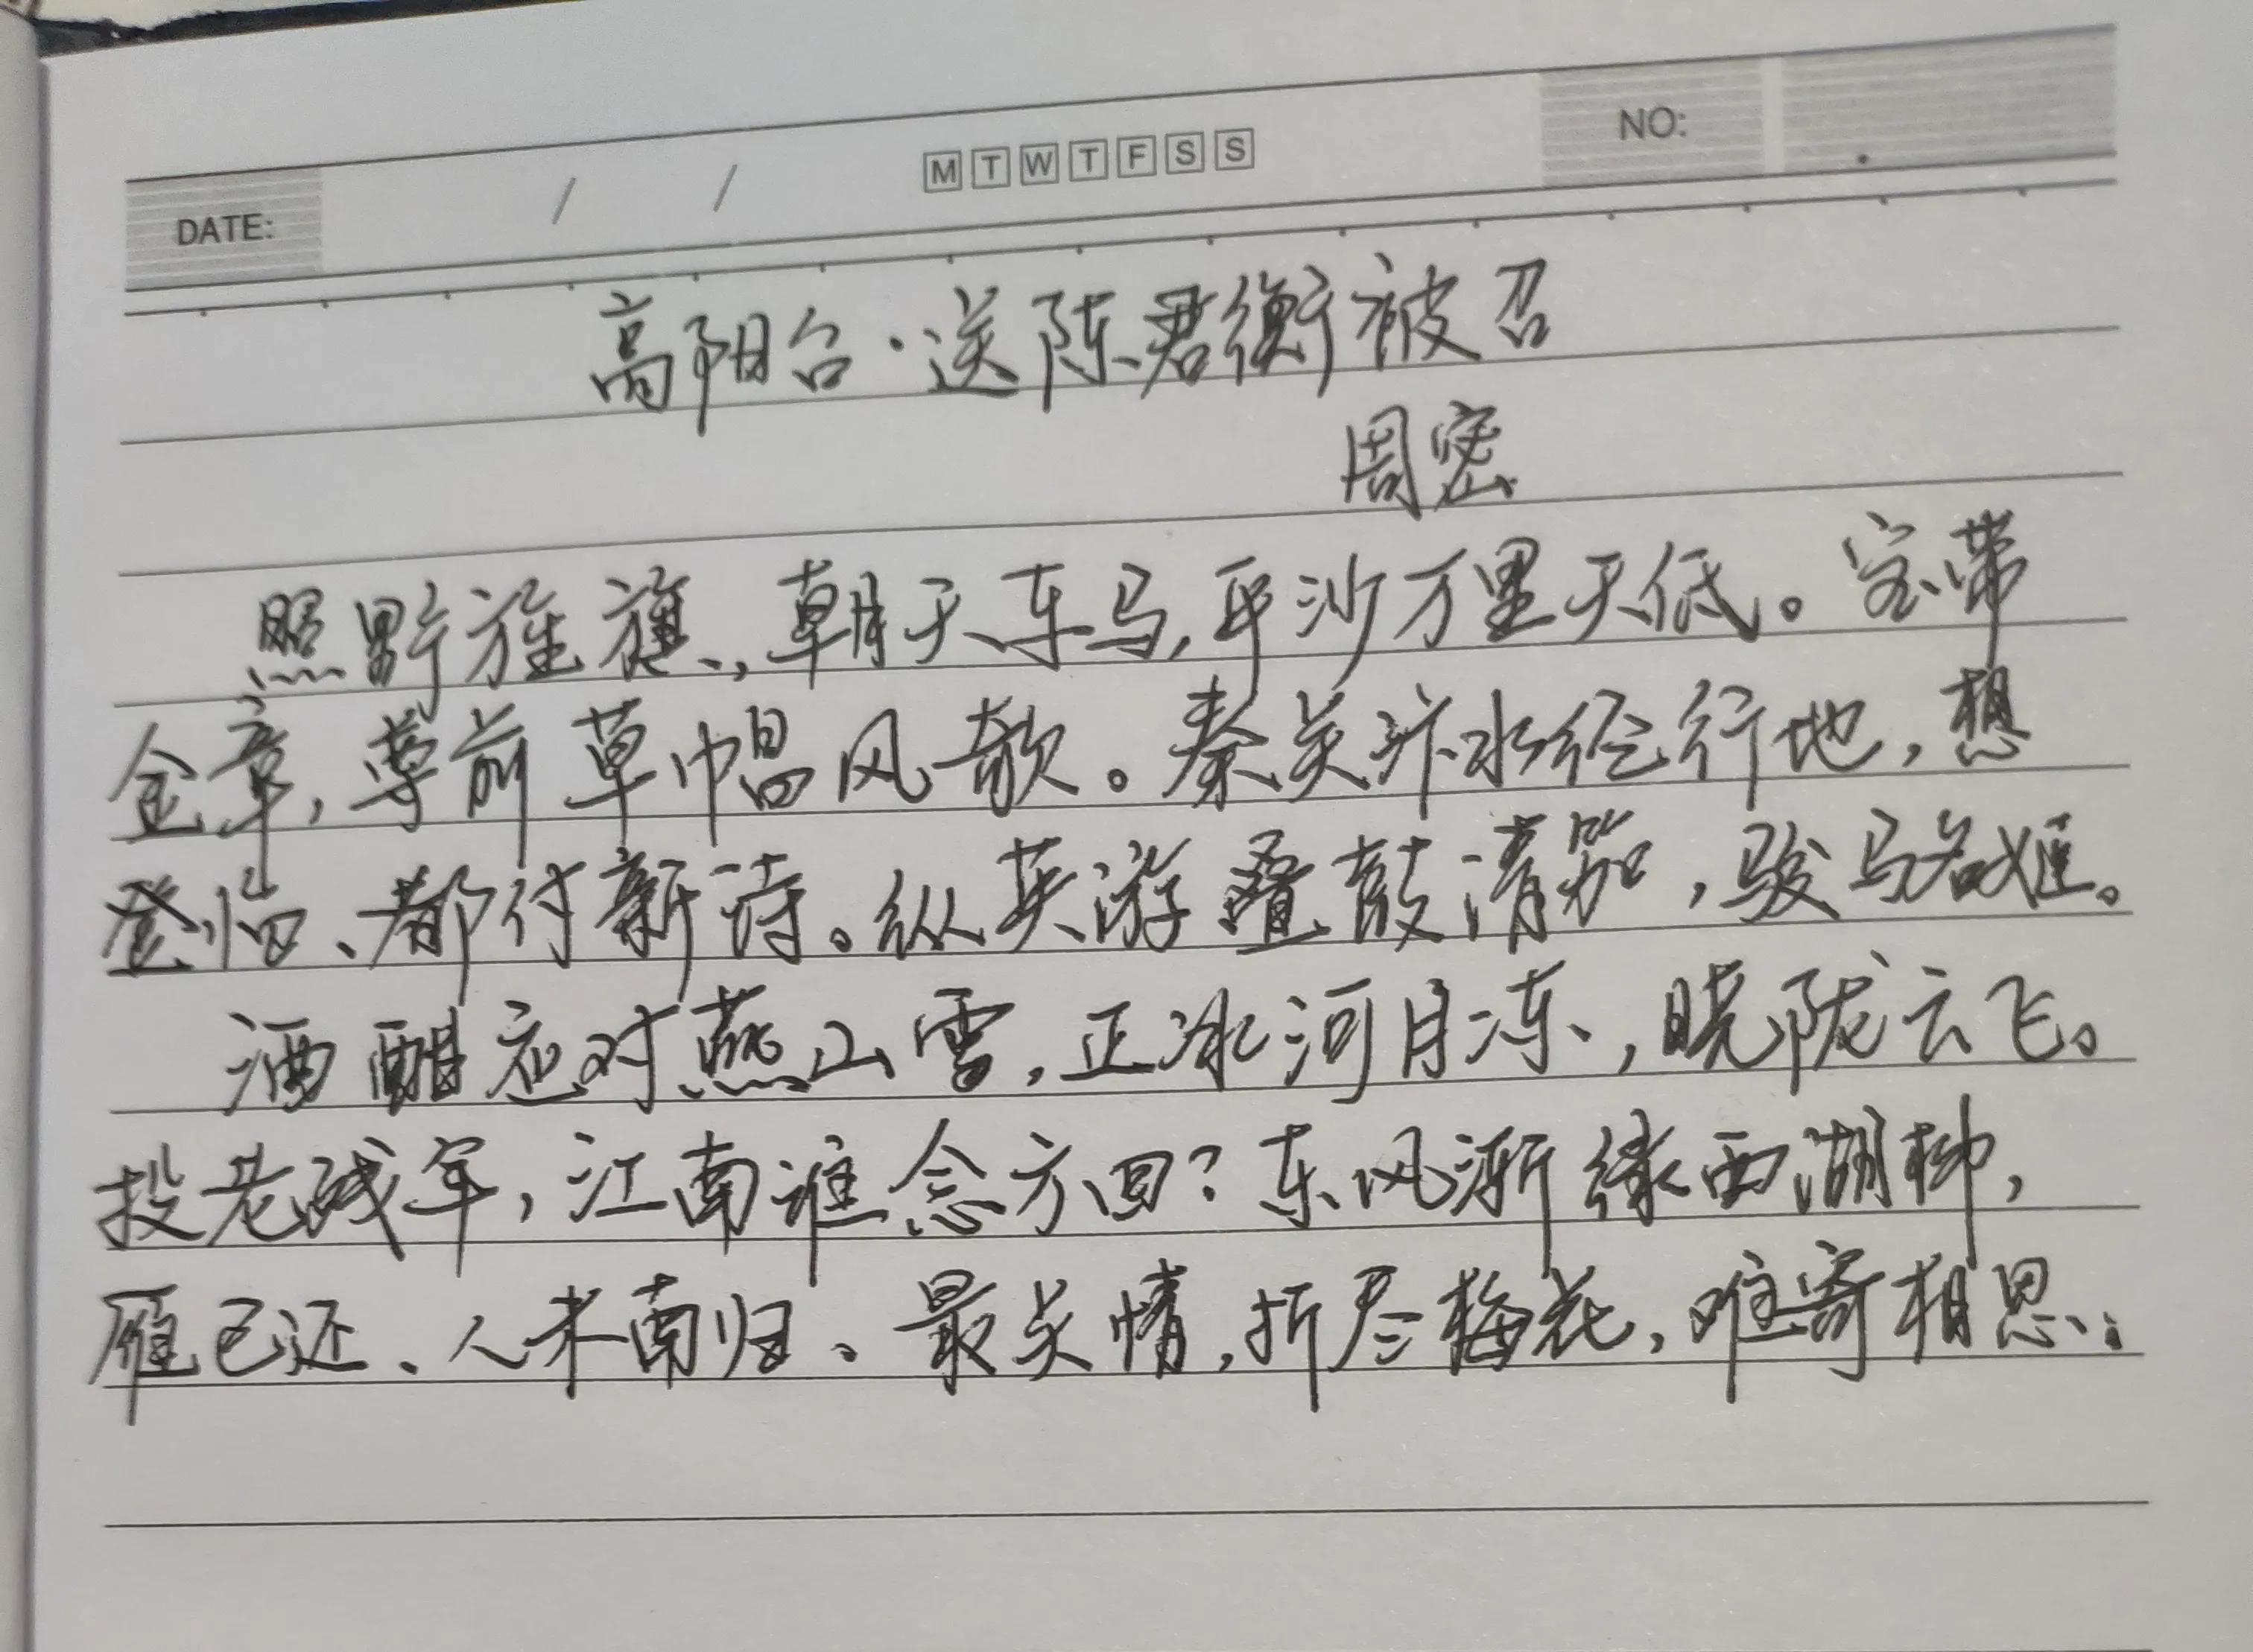 DATE: / / M T W T F S S NO:
高阳台·送陈君衡被召
周密
照野旌旗,朝天车马,平沙万里天低。宝带
金章,尊前草帽风欹。秦关汴水经行地,想
登临、都付新诗。纵英游叠鼓清笳,骏马名姬。
酒醋应对燕山雪,正冰河月冻,晓陇云飞。
投老残年,江南谁念方回?东风渐绿西湖柳,
雁已还、人未南归、最关情,折尽梅花,难寄相思。